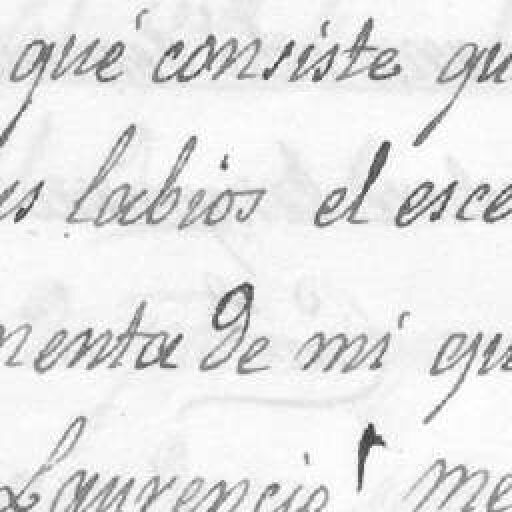 qué consiste qu
us labios el esce
menta de mi qu
Laurencio! me